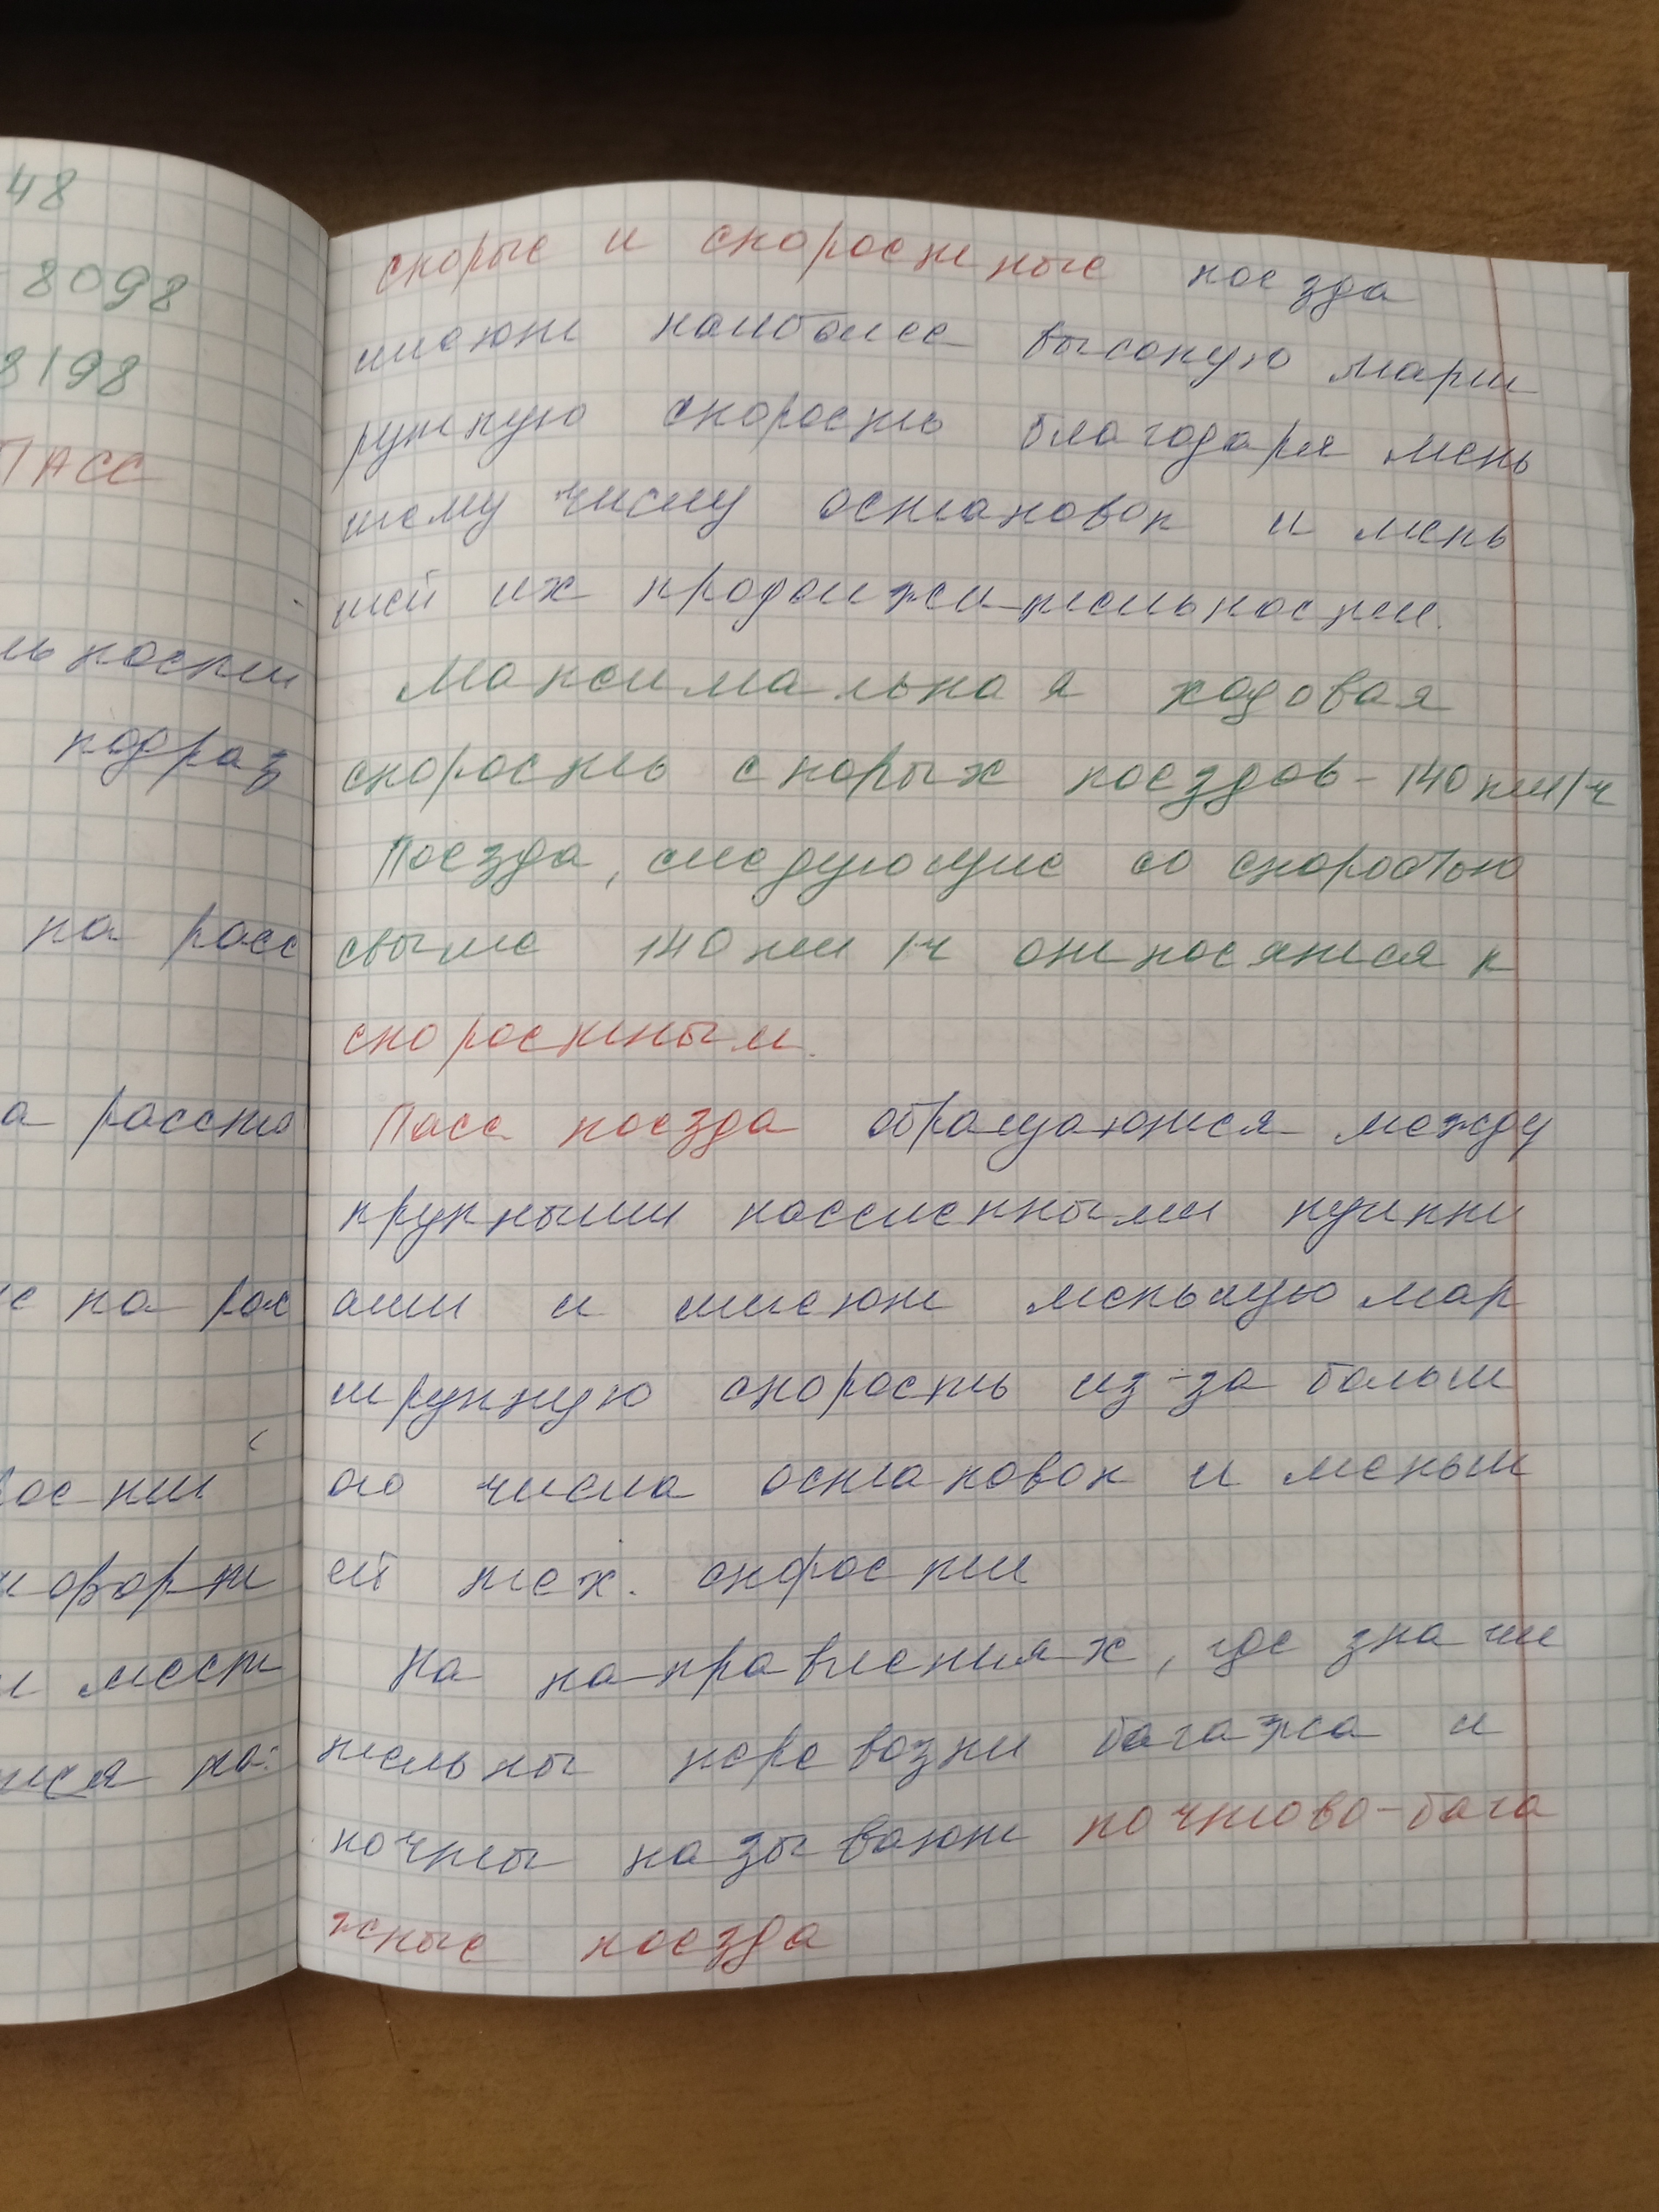 48
8098
8198
ПАСС
льности
подраз
на расс
а расстоя
е на рас
ости
форт
и мест
тся на:
скорые и скоростные поезда
имеют наиболее высокую марш
рутную скорость благодаря мень
шему числу остановок и мень
шей их продолжительности.
Максимальная ходовая
скорость скорых поездов - 140 км/ч
Поезда, следующие со скоростью
свыше 140 км/ч относятся к
скоростным.
Пасс поезда обращаются между
крупными населенными пункт
ами и имеют меньшую мар
шрутную скорость из-за больш
ого числа остановок и меньш
ей тех. скорости
На направлениях, где значи
тельны перевозки багажа и
почты называют почтово-бага
жные поезда